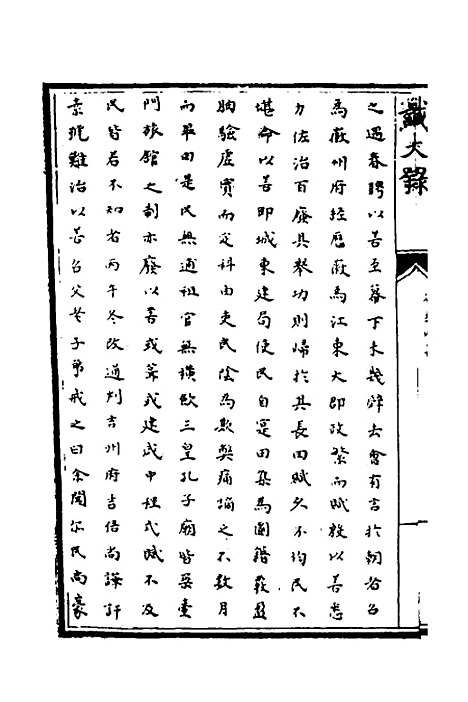 之遇春聘以善至幕下未幾辭去會有言於朝者召
為徽州府經歷徽為江東大郡政繁而賦殷以善悉
力佐治百廢具舉功則歸於其長田賦久不均民不
堪命以善即城東建局使民自寔田畝為圖籍發盈
朒驗虛實而定科由吏民陰為欺獘痛搹之不數月
而畢由是民無逋租官無橫歛三皇孔子廟皆葺臺
門旅館之制亦廢以善或葺或建咸中程式賦不及
民皆若不知者丙午冬改通判吉州府吉俗尚譁訐
素號難治以善召父老子弟戒之曰余聞尔民尚豪
獻大錄